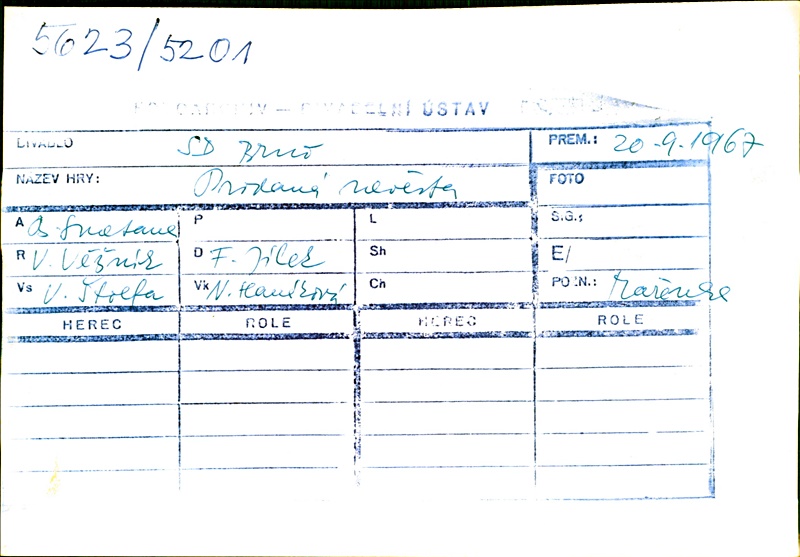 5623/5201
DIVADELNÍ ÚSTAV
DIVADLO SD Brno PREM.: 20.9.1967
NÁZEV HRY: Prodaná nevěsta FOTO
A B. Smetana P L S.G.:
R V. Věžník D F. Jílek Sh E/
Vs V. Štolfa Vk N. Hanáková Ch POZN.: Mařenka
HEREC ROLE HEREC ROLE